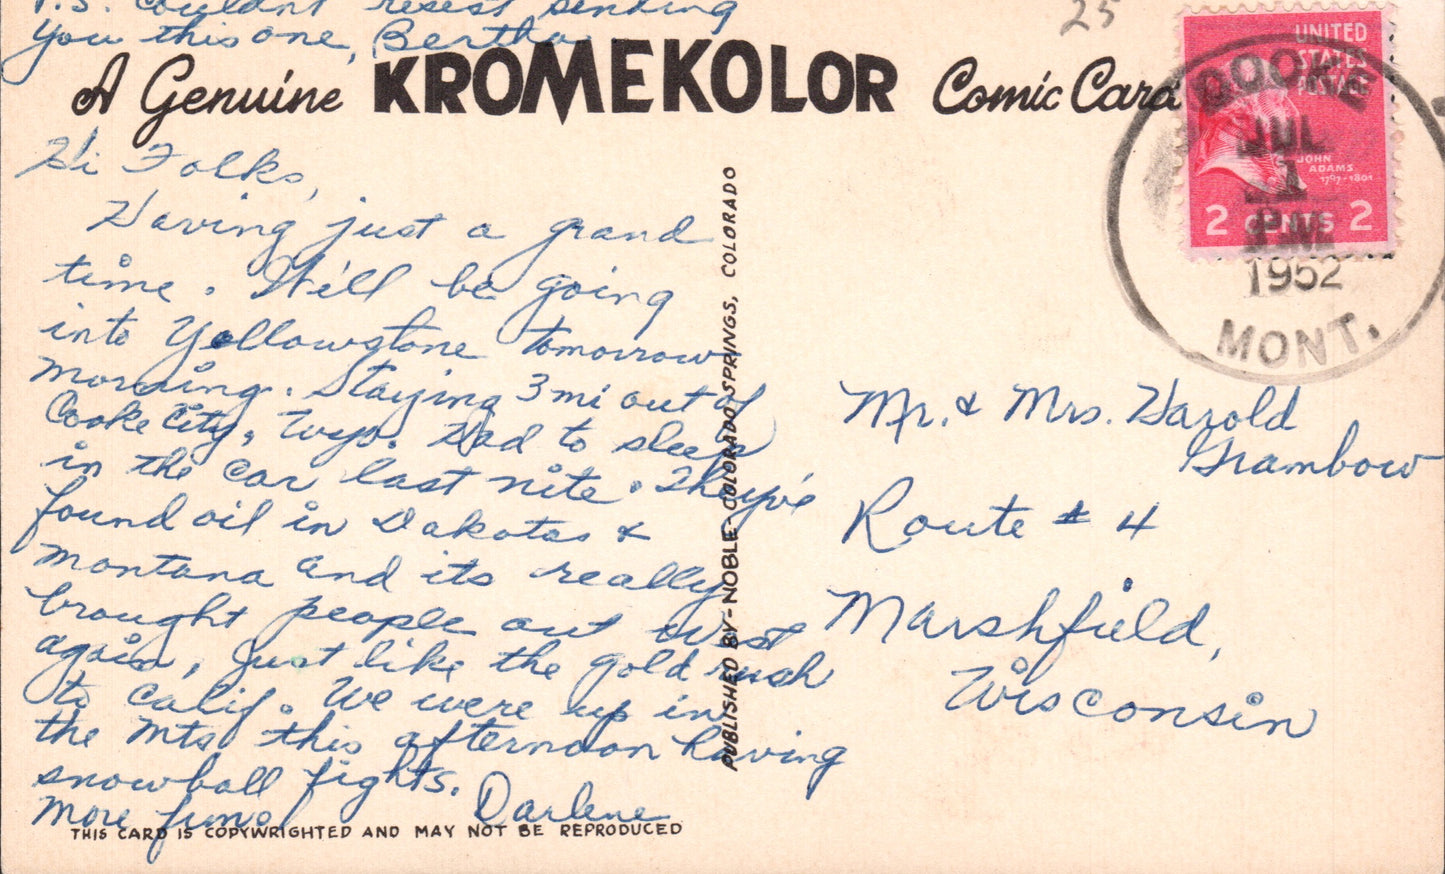 P.S. Couldn't resist sending
you this one, Bertha
25
A Genuine KROMEKOLOR Comic Card
UNITED
STATES
POSTAGE
JOHN
ADAMS
1797-1801
2 CENTS 2
COOKE
JUL
1
PM
1952
MONT.
Hi Folks,
Having just a grand
time. We'll be going
into Yellowstone tomorrow
morning. Staying 3 mi out of
Cooke City, Wyo. Had to sleep
in the car last nite. They've
found oil in Dakotas &
Montana and its really
brought people out west
again, just like the gold rush
to Calif. We were up in
the mts this afternoon having
snowball fights.
More fun! Darlene
PUBLISHED BY - NOBLE - COLORADO SPRINGS, COLORADO
Mr. & Mrs. Harold
Grambow
Route # 4
Marshfield,
Wisconsin
THIS CARD IS COPYWRIGHTED AND MAY NOT BE REPRODUCED